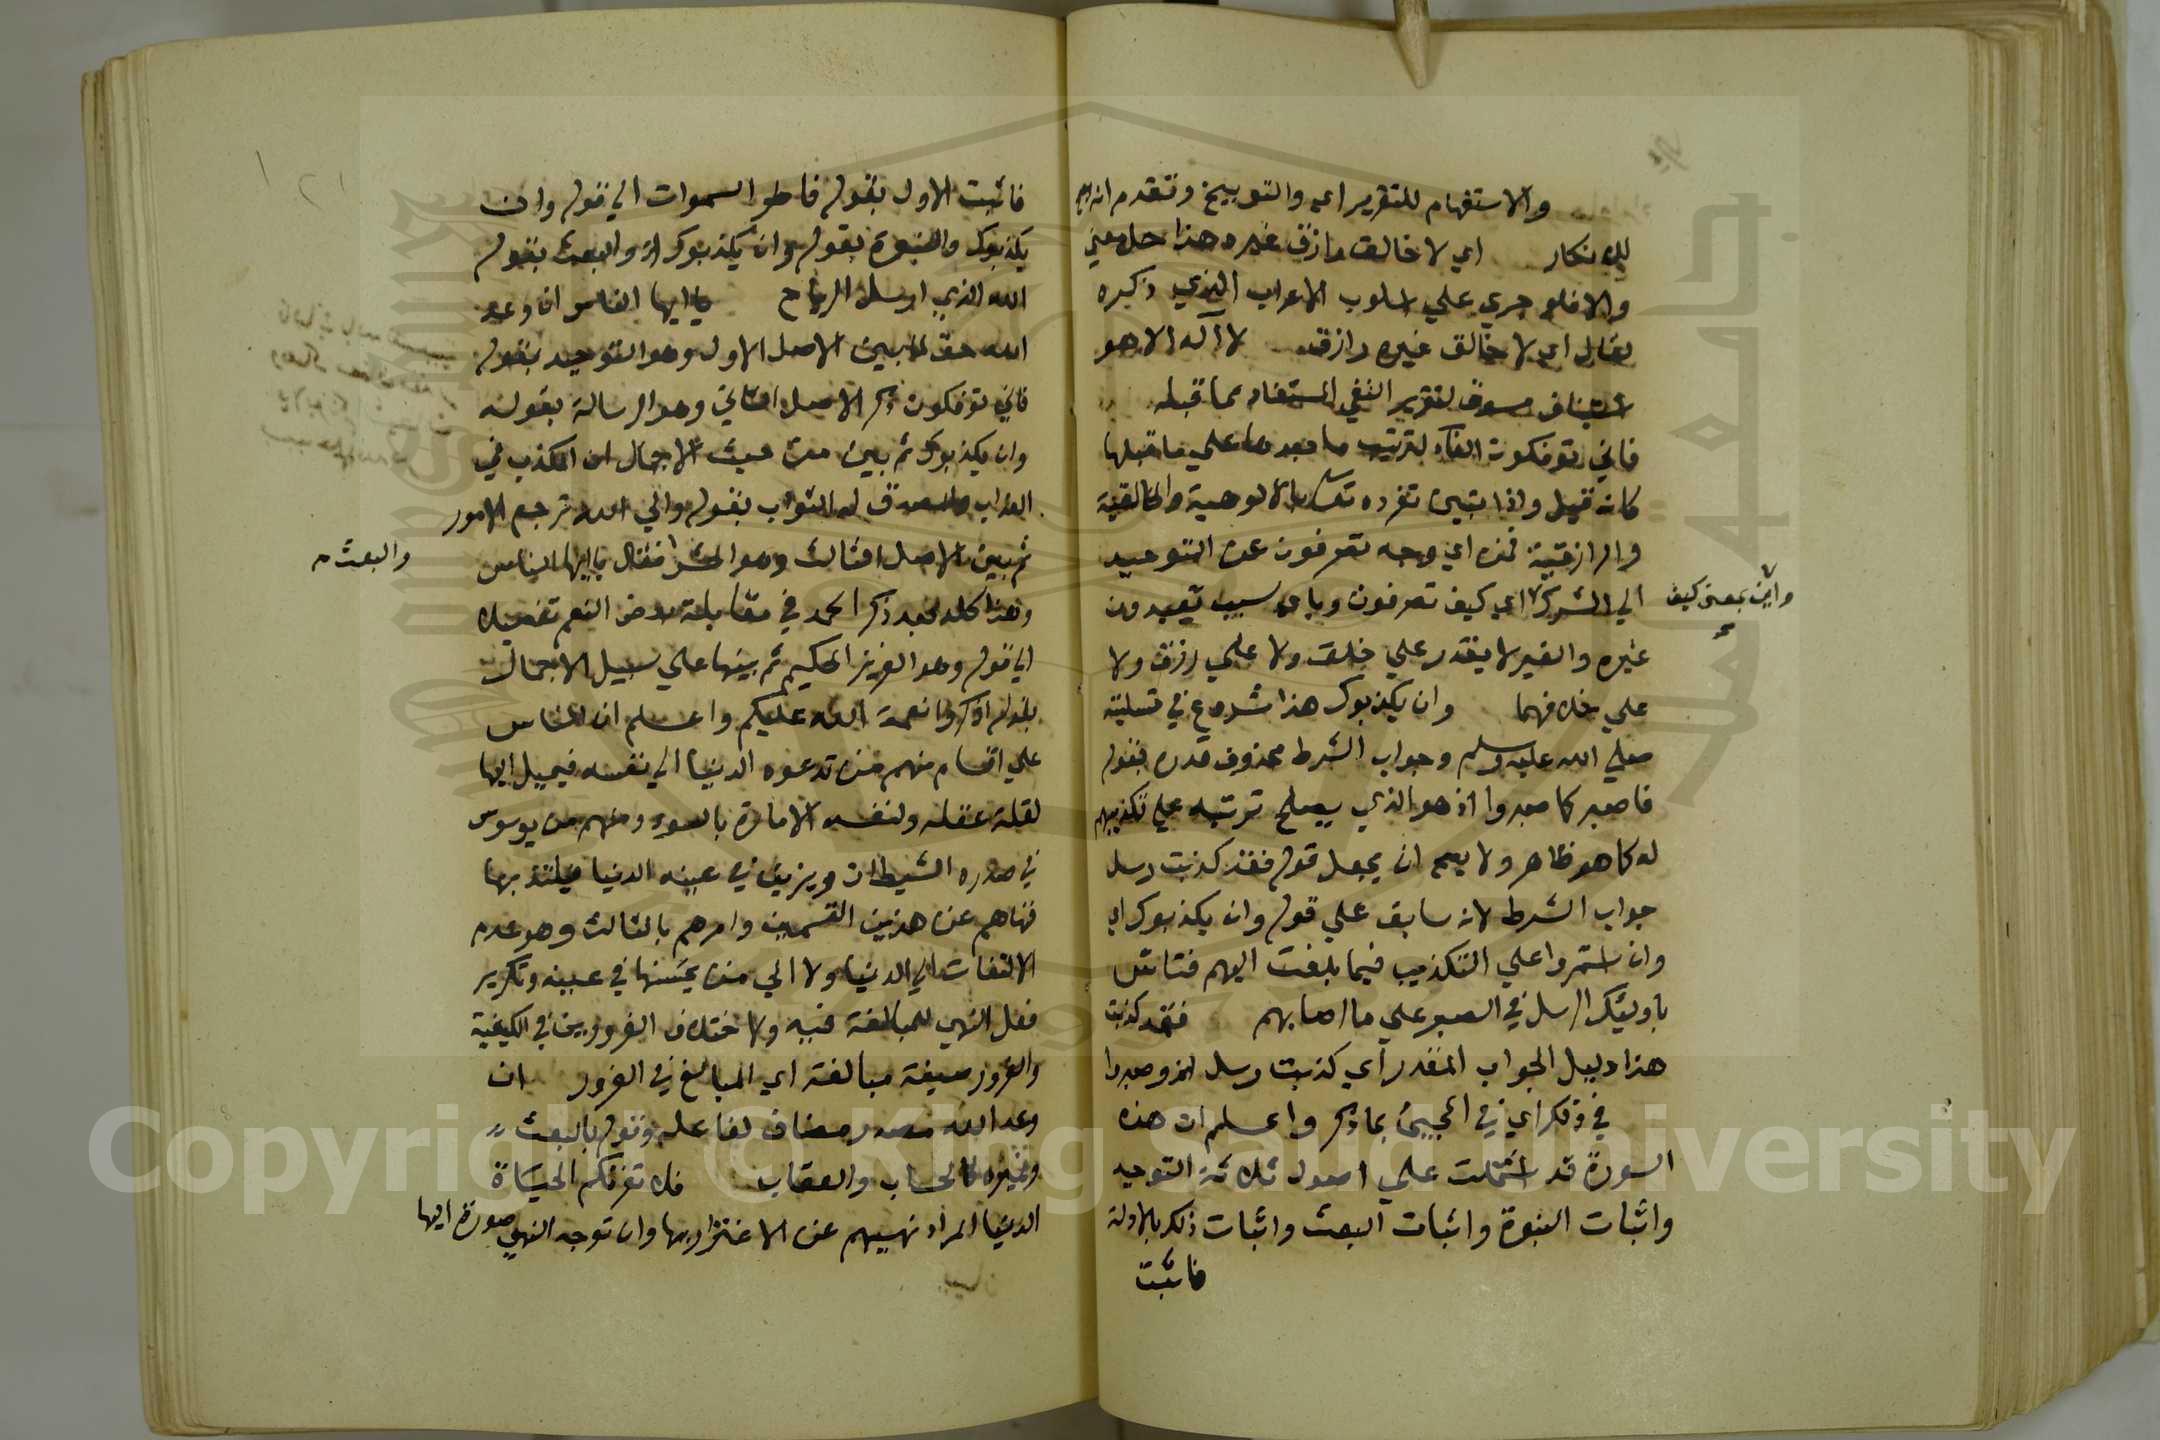 والاستفهام للتقرير اي والتوبيخ وتقدم انه
للانكار اي لا خالق رازق غيره هذا حل معني
والا فلو جري علي اسلوب الاعراب الذي ذكره
لقال اي لا خالق غيره رازق لا اله الا هو
استيناف مسوق لتقرير النفي المستفاد مما قبله
فاني توفكون الفاء لترتيب ما بعدها علي ما قبلها
كانه قيل واذا تبين تفرده تعالى بالالوهية والخالقية
والرازقية فمن اي وجه تصرفون عن التوحيد
الي الشرك اي كيف تصرفون وباي سبب تعبدون
واين بمعني كيف
غيره والغير لا يقدر علي خلق ولا علي رزق ولا
علي خلافهما وان يكذبوك هذا شروع في تسلية
صلي الله عليه وسلم وجواب الشرط محذوف قدره بقوله
فاصبر كما صبروا اذ هو الذي يصلح ترتبه علي تكذيبهم
له كما هو ظاهر ولا يصح ان يجعل قوله فقد كذبت رسل
جواب الشرط لانه سابق علي قوله وان يكذبوك اي
وان استمروا علي التكذيب فيما بلغت اليهم فتاس
باوليك الرسل في الصبر علي ما اصابهم فقد كذبت
هذا دليل الجواب المقدر اي كذبت رسل الخ وصبروا
في ذلك اي في المجيئ بما ذكر واعلم ان هذه
السورة قد اشتملت علي اصول ثلاثة التوحيد
واثبات النبوة واثبات البعث واثبات ذلك بالادلة
فاثبت
فاثبت الاول بقوله فاطر السموات الي قوله وان
يكذبوك والنبوة بقوله وان يكذبوك الخ والبعث بقوله
الله الذي ارسل الرياح يا ايها الناس ان وعد
الله حق لما بين الاصل الاول وهو التوحيد بقوله
فاني توفكون ذكر الاصل الثاني وهو الرسالة بقوله
وان يكذبوك ثم بين من حيث الاجمال ان المكذب في
العذاب والمصدق له الثواب بقوله والي الله ترجع الامور
ثم بين الاصل الثالث وهو الحشر فقال يا ايها الناس
والبعث
وهذا كله بعد ذكر الحمد في مقابلة بعض النعم تفصيلا
الي قوله وهو العزيز الحكيم ثم بينها علي سبيل الاجمال
بقوله اذكروا نعمة الله عليكم واعلم ان الناس
علي اقسام منهم من تدعوه الدنيا الي نفسه فيميل اليها
لقلة عقله ولنفسه الامارة بالسوء ومنهم من يوسوس
في صدره الشيطان ويزين في عينه الدنيا فيلتذ بها
فنهاهم عن هذين القسمين وامرهم بالثالث وهو عدم
الالتفات الي الدنيا ولا الي من يحسنها في عينه وتكرير
فعل النهي للمبالغة فيه ولاختلاف الغرورين في الكيفية
والغرور صيغة مبالغة اي المبالغ في الغرور ان
وعد الله مصدر مضاف لفاعله وقوله بالبعث
وغيره كالحساب والعقاب فلا تغرنكم الحياة
الدنيا المراد نهييهم عن الاغترار بها وان توجه النهي صورة اليها